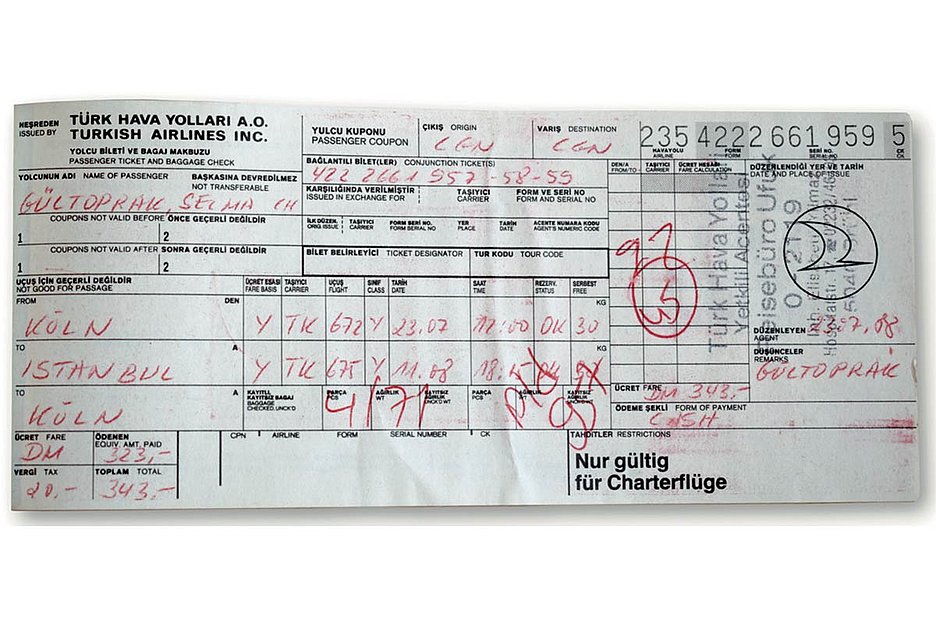 NEŞREDEN TÜRK HAVA YOLLARI A.O.
ISSUED BY TURKISH AIRLINES INC.
YOLCU BİLETİ VE BAGAJ MAKBUZU
PASSENGER TICKET AND BAGGAGE CHECK
YULCU KUPONU
PASSENGER COUPON
ÇIKIŞ ORIGIN
CGN
VARIŞ DESTINATION
CGN
235 4222 661 959 5
HAVAYOLU FORM SERİ NO. CK
AIRLINE FORM SERIAL NO. CK
YOLCUNUN ADI NAME OF PASSENGER
BAŞKASINA DEVREDİLMEZ
NOT TRANSFERABLE
GÜLTOPRAK, SELMA CH
BAĞLANTILI BİLET(LER) CONJUNCTION TICKET(S)
422 2661 957-58-59
KARŞILIĞINDA VERİLMİŞTİR TAŞIYICI FORM VE SERİ NO
ISSUED IN EXCHANGE FOR CARRIER FORM AND SERIAL NO
İLK DÜZEN. TAŞIYICI FORM SERİ NO YER TARİH ACENTE NUMARA KODU
ORIG ISSUE CARRIER FORM SERIAL NO PLACE DATE AGENT'S NUMERIC CODE
BİLET BELİRLEYİCİ TICKET DESIGNATOR TUR KODU TOUR CODE
COUPONS NOT VALID BEFORE ÖNCE GEÇERLİ DEĞİLDİR
1 2
COUPONS NOT VALID AFTER SONRA GEÇERLİ DEĞİLDİR
1 2
DEN/A TAŞIYICI ÜCRET HESABI
FROM/TO CARRIER FARE CALCULATION
DÜZENLENDİĞİ YER VE TARİH
DATE AND PLACE OF ISSUE
Türk Hava Yolları
Yetkili Acentesi
Reisebüro Ufuk
0-2119
UÇUŞ İÇİN GEÇERLİ DEĞİLDİR
NOT GOOD FOR PASSAGE
ÜCRET ESASI TAŞIYICI UÇUŞ SINIF TARİH SAAT REZERV. SERBEST
FARE BASIS CARRIER FLIGHT CLASS DATE TIME STATUS FREE
FROM DEN KG
KÖLN Y TK 672 Y 23.07 17:00 OK 30
TO A KG
ISTANBUL Y TK 675 Y 11.08
TO A
KÖLN
KAYITLI BAGAJ PARÇA AĞIRLIK KAYITSIZ AĞIRLIK PARÇA AĞIRLIK
BAGGAGE CHECKED, UNCK'D PCS WT UNCK'D WT PCS WT
4/71
DÜZENLEYEN
AGENT
DÜŞÜNCELER
REMARKS
GÜLTOPRAK
ÜCRET FARE
DM 343,-
ÖDEME ŞEKLİ FORM OF PAYMENT
CASH
ÜCRET FARE ÖDENEN
EQUIV. AMT. PAID
DM 323,-
VERGİ TAX TOPLAM TOTAL
20,- 343,-
CPN AIRLINE FORM SERIAL NUMBER CK
TAHDİTLER RESTRICTIONS
Nur gültig
für Charterflüge